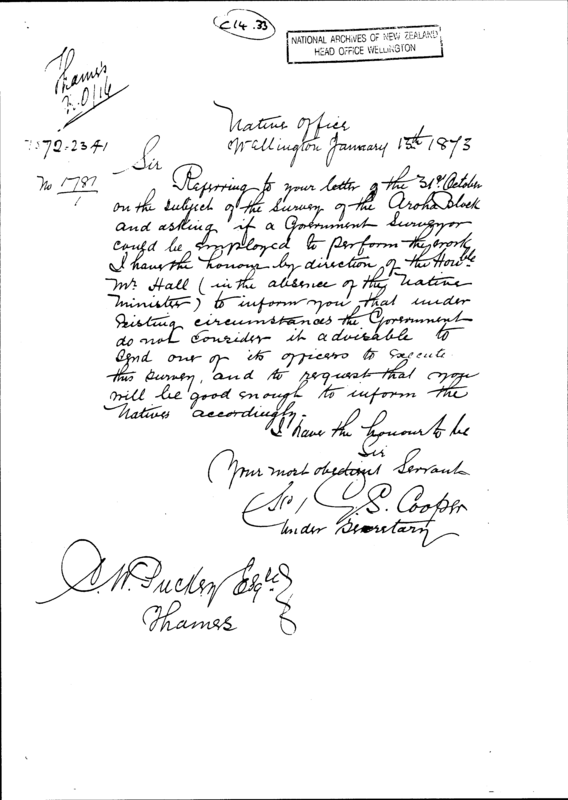 C14.33
NATIONAL ARCHIVES OF NEW ZEALAND
HEAD OFFICE WELLINGTON
Thames
72-2341
Native Office
Wellington January 13th 1873
Sir
No 1787/1
Referring to your letter of the 31st October
on the subject of the Survey of the Aroha Block
and asking if a Government Surveyor
could be employed to perform the work
I have the honour by direction of the Honble
Mr Hall (in the absence of the Native
Minister) to inform you that under
existing circumstances the Government
do not consider it advisable to
send one of its officers to execute
this survey, and to request that you
will be good enough to inform the
Natives accordingly.
I have the honour to be
Sir
Your most obedient Servant
G. S. Cooper
Under Secretary
W. Puckey Esqre
Thames